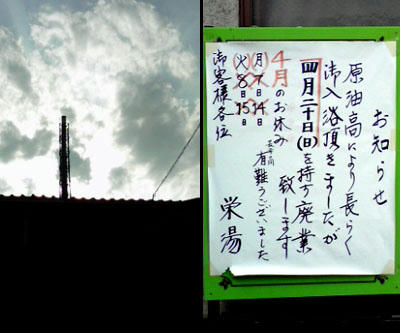 お知らせ
原油高により長らく
御入浴頂きましたが
四月二十日(日)を持ず廃業
致します
長年間
有難うございました
栄湯
4月のお休み
(月)7日14日
(火)8日15日
御客様各位